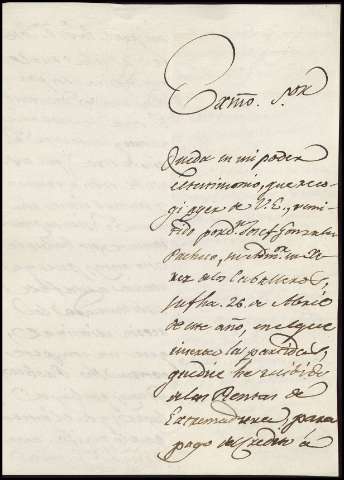 Exmo. Sor.
Queda en mi poder
el testimonio, que reco-
gi ayer de V.E., remi-
tido por Dn. Josef Gonzalez
Pacheco, su Admor. en Xe-
rez de los Caballeros,
su fha. 26. de Abril
de este año, en el que
inserta las partidas,
que dice he recibido
de las Rentas de
Extremadura, para
pago del Credito á